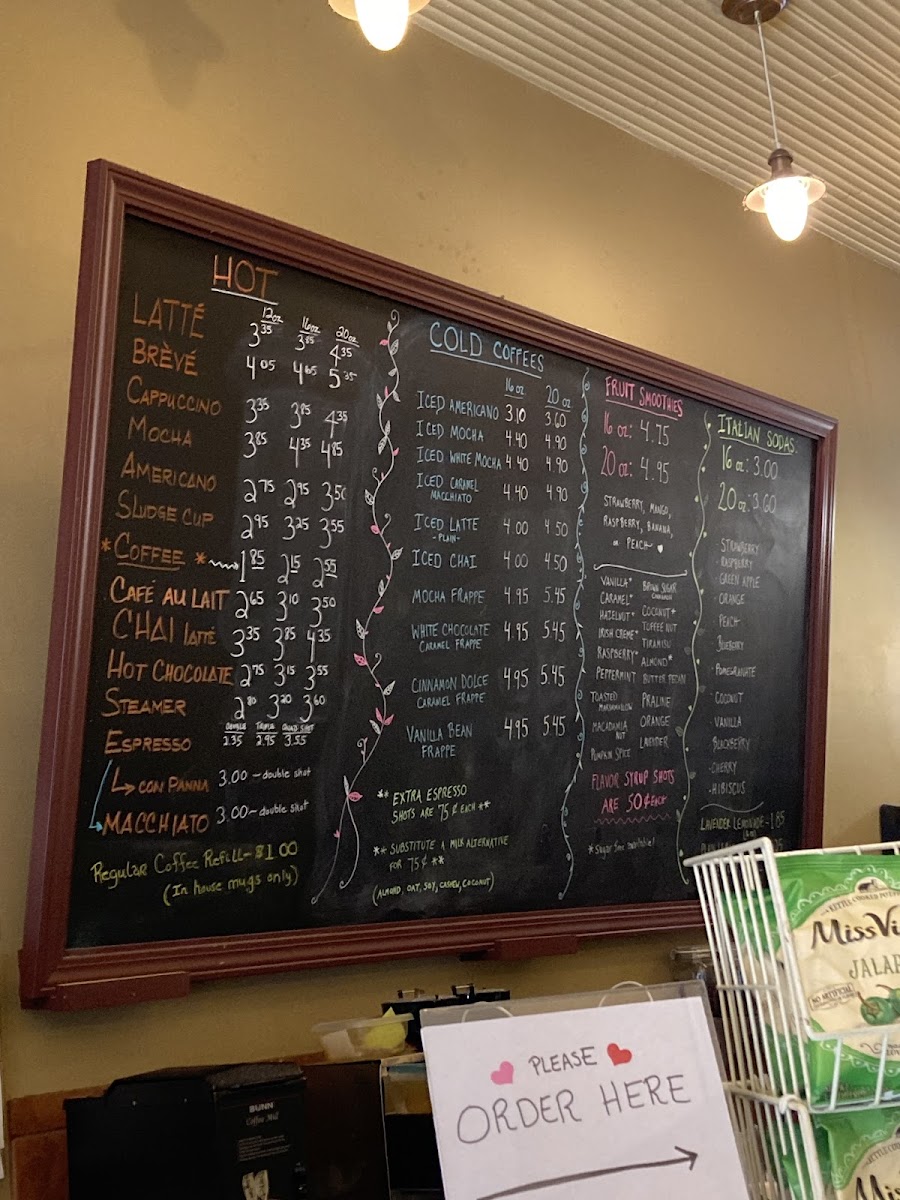 HOT
12oz 16oz 20oz
LATTÉ 3.35 3.85 4.35
BRÈVÉ 4.05 4.65 5.35
CAPPUCCINO 3.35 3.85 4.35
MOCHA 3.85 4.35 4.85
AMERICANO 2.75 2.95 3.50
SLUDGE CUP 2.95 3.25 3.55
*COFFEE* 1.85 2.15 2.55
CAFÉ AU LAIT 2.65 3.10 3.50
CHAI LATTÉ 3.35 3.85 4.35
HOT CHOCOLATE 2.75 3.15 3.55
STEAMER 2.80 3.20 3.60
DOUBLE TRIPLE QUAD SHOT
ESPRESSO 2.35 2.95 3.55
CON PANNA 3.00 - double shot
MACCHIATO 3.00 - double shot
Regular Coffee Refill - $1.00
(In house mugs only)
COLD COFFEES
16 oz 20 oz
ICED AMERICANO 3.10 3.60
ICED MOCHA 4.40 4.90
ICED WHITE MOCHA 4.40 4.90
ICED CARAMEL
MACCHIATO 4.40 4.90
ICED LATTE 4.00 4.50
-PLAIN-
ICED CHAI 4.00 4.50
MOCHA FRAPPE 4.95 5.45
WHITE CHOCOLATE 4.95 5.45
CARAMEL FRAPPE
CINNAMON DOLCE 4.95 5.45
CARAMEL FRAPPE
VANILLA BEAN 4.95 5.45
FRAPPE
** EXTRA ESPRESSO
SHOTS ARE 75¢ EACH **
** SUBSTITUTE A MILK ALTERNATIVE
FOR 75¢ **
(ALMOND, OAT, SOY, CASHEW, COCONUT)
FRUIT SMOOTHIES
16 oz: 4.75
20 oz: 4.95
STRAWBERRY, MANGO,
RASPBERRY, BANANA,
OR PEACH
VANILLA* BROWN SUGAR
CINNAMON
CARAMEL* COCONUT*
HAZELNUT* TOFFEE NUT
IRISH CREME* TIRAMISU
RASPBERRY* ALMOND*
PEPPERMINT BUTTER PECAN
TOASTED
MARSHMALLOW PRALINE
MACADAMIA
NUT ORANGE
PUMPKIN SPICE LAVENDER
FLAVOR SYRUP SHOTS
ARE 50¢ EACH
*Sugar free available!
ITALIAN SODAS
16 oz: 3.00
20 oz: 3.60
STRAWBERRY
RASPBERRY
GREEN APPLE
ORANGE
PEACH
BLUEBERRY
POMEGRANATE
COCONUT
VANILLA
BLACKBERRY
CHERRY
HIBISCUS
LAVENDER LEMONADE - 1.85
PLEASE
ORDER HERE
BUNN
Coffee Mill
KETTLE COOKED
Miss Vi
JALAP
NO ARTIFICIAL